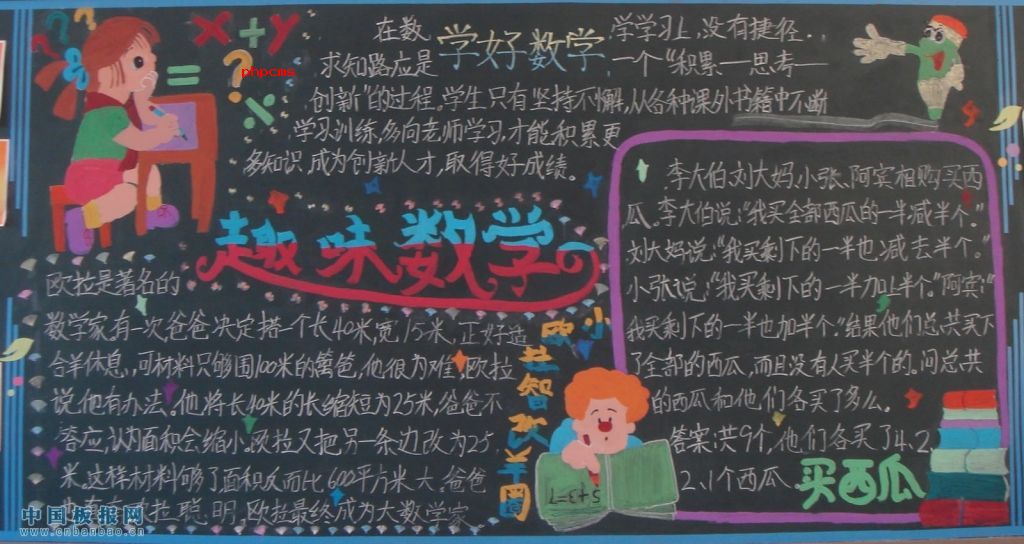 x+y
=
?
phpcms
%
学好数学
在数学学习上,没有捷径.
求知路应是一个“积累—思考—
创新”的过程。学生只有坚持不懈,从各种课外书籍中不断
学习训练,多向老师学习,才能积累更
多知识,成为创新人才,取得好成绩。
趣味数学
欧拉是著名的
数学家有一次爸爸决定搭一个长40米,宽15米,正好造
合羊休息,可材料只够围100米的篱笆,他很为难,欧拉
说他有办法。他将长40米的长缩短为25米,爸爸不
答应,认为面积会缩小。欧拉又把另一条边改为25
米,这样材料够了面积反而比600平方米大。爸爸
拉聪明,欧拉最终成为大数学家
小欧拉智改羊圈
李大伯、刘大妈、小张、阿宾相购买西
瓜。李大伯说:“我买全部西瓜的一半减半个。”
刘大妈说:“我买剩下的一半也减去半个。”
小张说:“我买剩下的一半加上半个。”阿宾:“
我买剩下的一半也加半个。”结果他们总共买下
了全部的西瓜,而且没有人买半个的。问总共
的西瓜和他们各买了多么。
答案:共9个,他们各买了4、2
2、1个西瓜
买西瓜
5+3=7
中国板报网
www.cnbanbao.cn